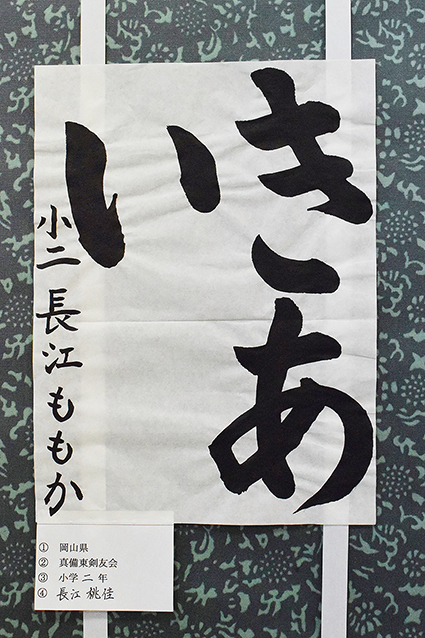 きあ
い
小二 長江ももか
① 岡山県
② 真備東剣友会
③ 小学 二 年
④ 長江 桃佳